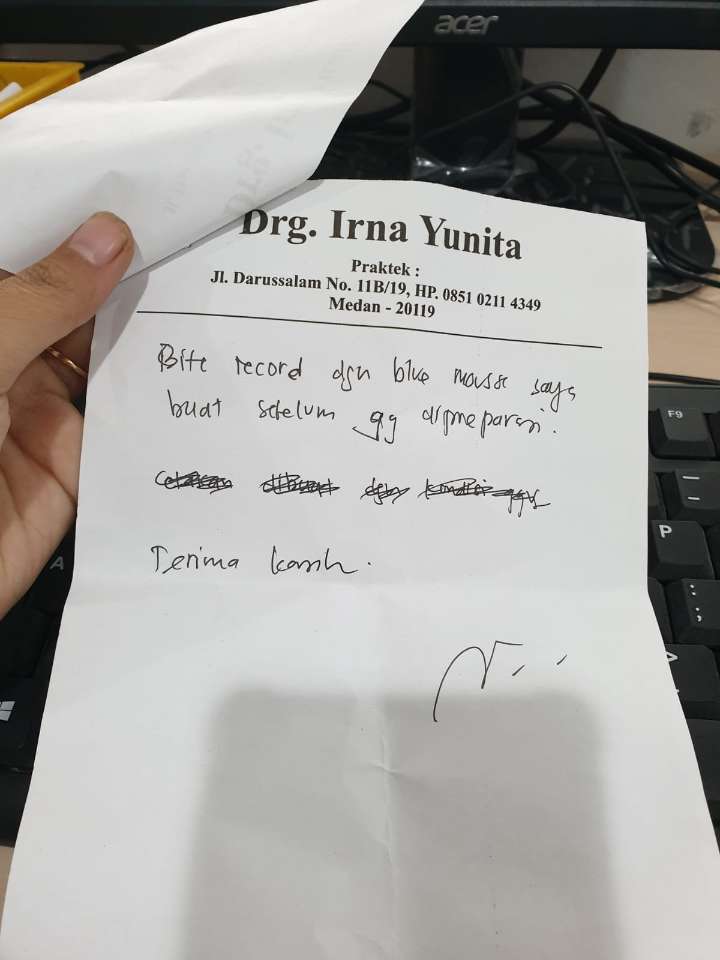 acer
Drg. Irna Yunita
Praktek :
Jl. Darussalam No. 11B/19, HP. 0851 0211 4349
Medan - 20119
Bite record dgn blue mousse saya
buat sebelum gg dipreparasi.
Terima kasih.
F9
P
A